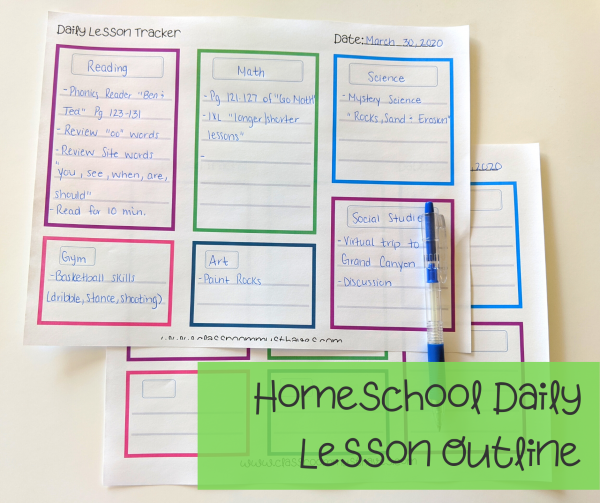 Daily Lesson Tracker
Date: March 30, 2020
Reading
- Phonics Reader "Ben +
Ted" Pg. 123-131
- Review "oo" words
- Review Site words
"you, see, when, are,
should"
- Read for 10 min.
Math
- Pg. 121-127 of "Go Math"
- IXL "longer/shorter
lessons"
-
Science
- Mystery Science
"Rocks, Sand + Erosion"
Gym
- Basketball skills
(dribble, stance, shooting)
Art
- Paint Rocks
Social Studie
- Virtual trip to
Grand Canyon
- Discussion
www.classroommusthaves.com
, 2020
Homeschool Daily
Lesson Outline